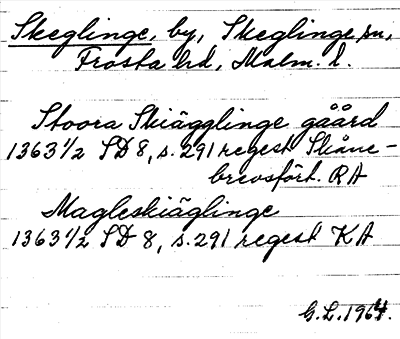 Skeglinge, by, Skeglinge sn,
Frosta hd, Malm. l.
Stoora Skiägglinge gåård
1363 1/2 SD 8, s. 291 regest Skåne-
brevsfört. RA
Magleskiäglinge
1363 1/2 SD 8, s. 291 regest KA
G.L. 1964.